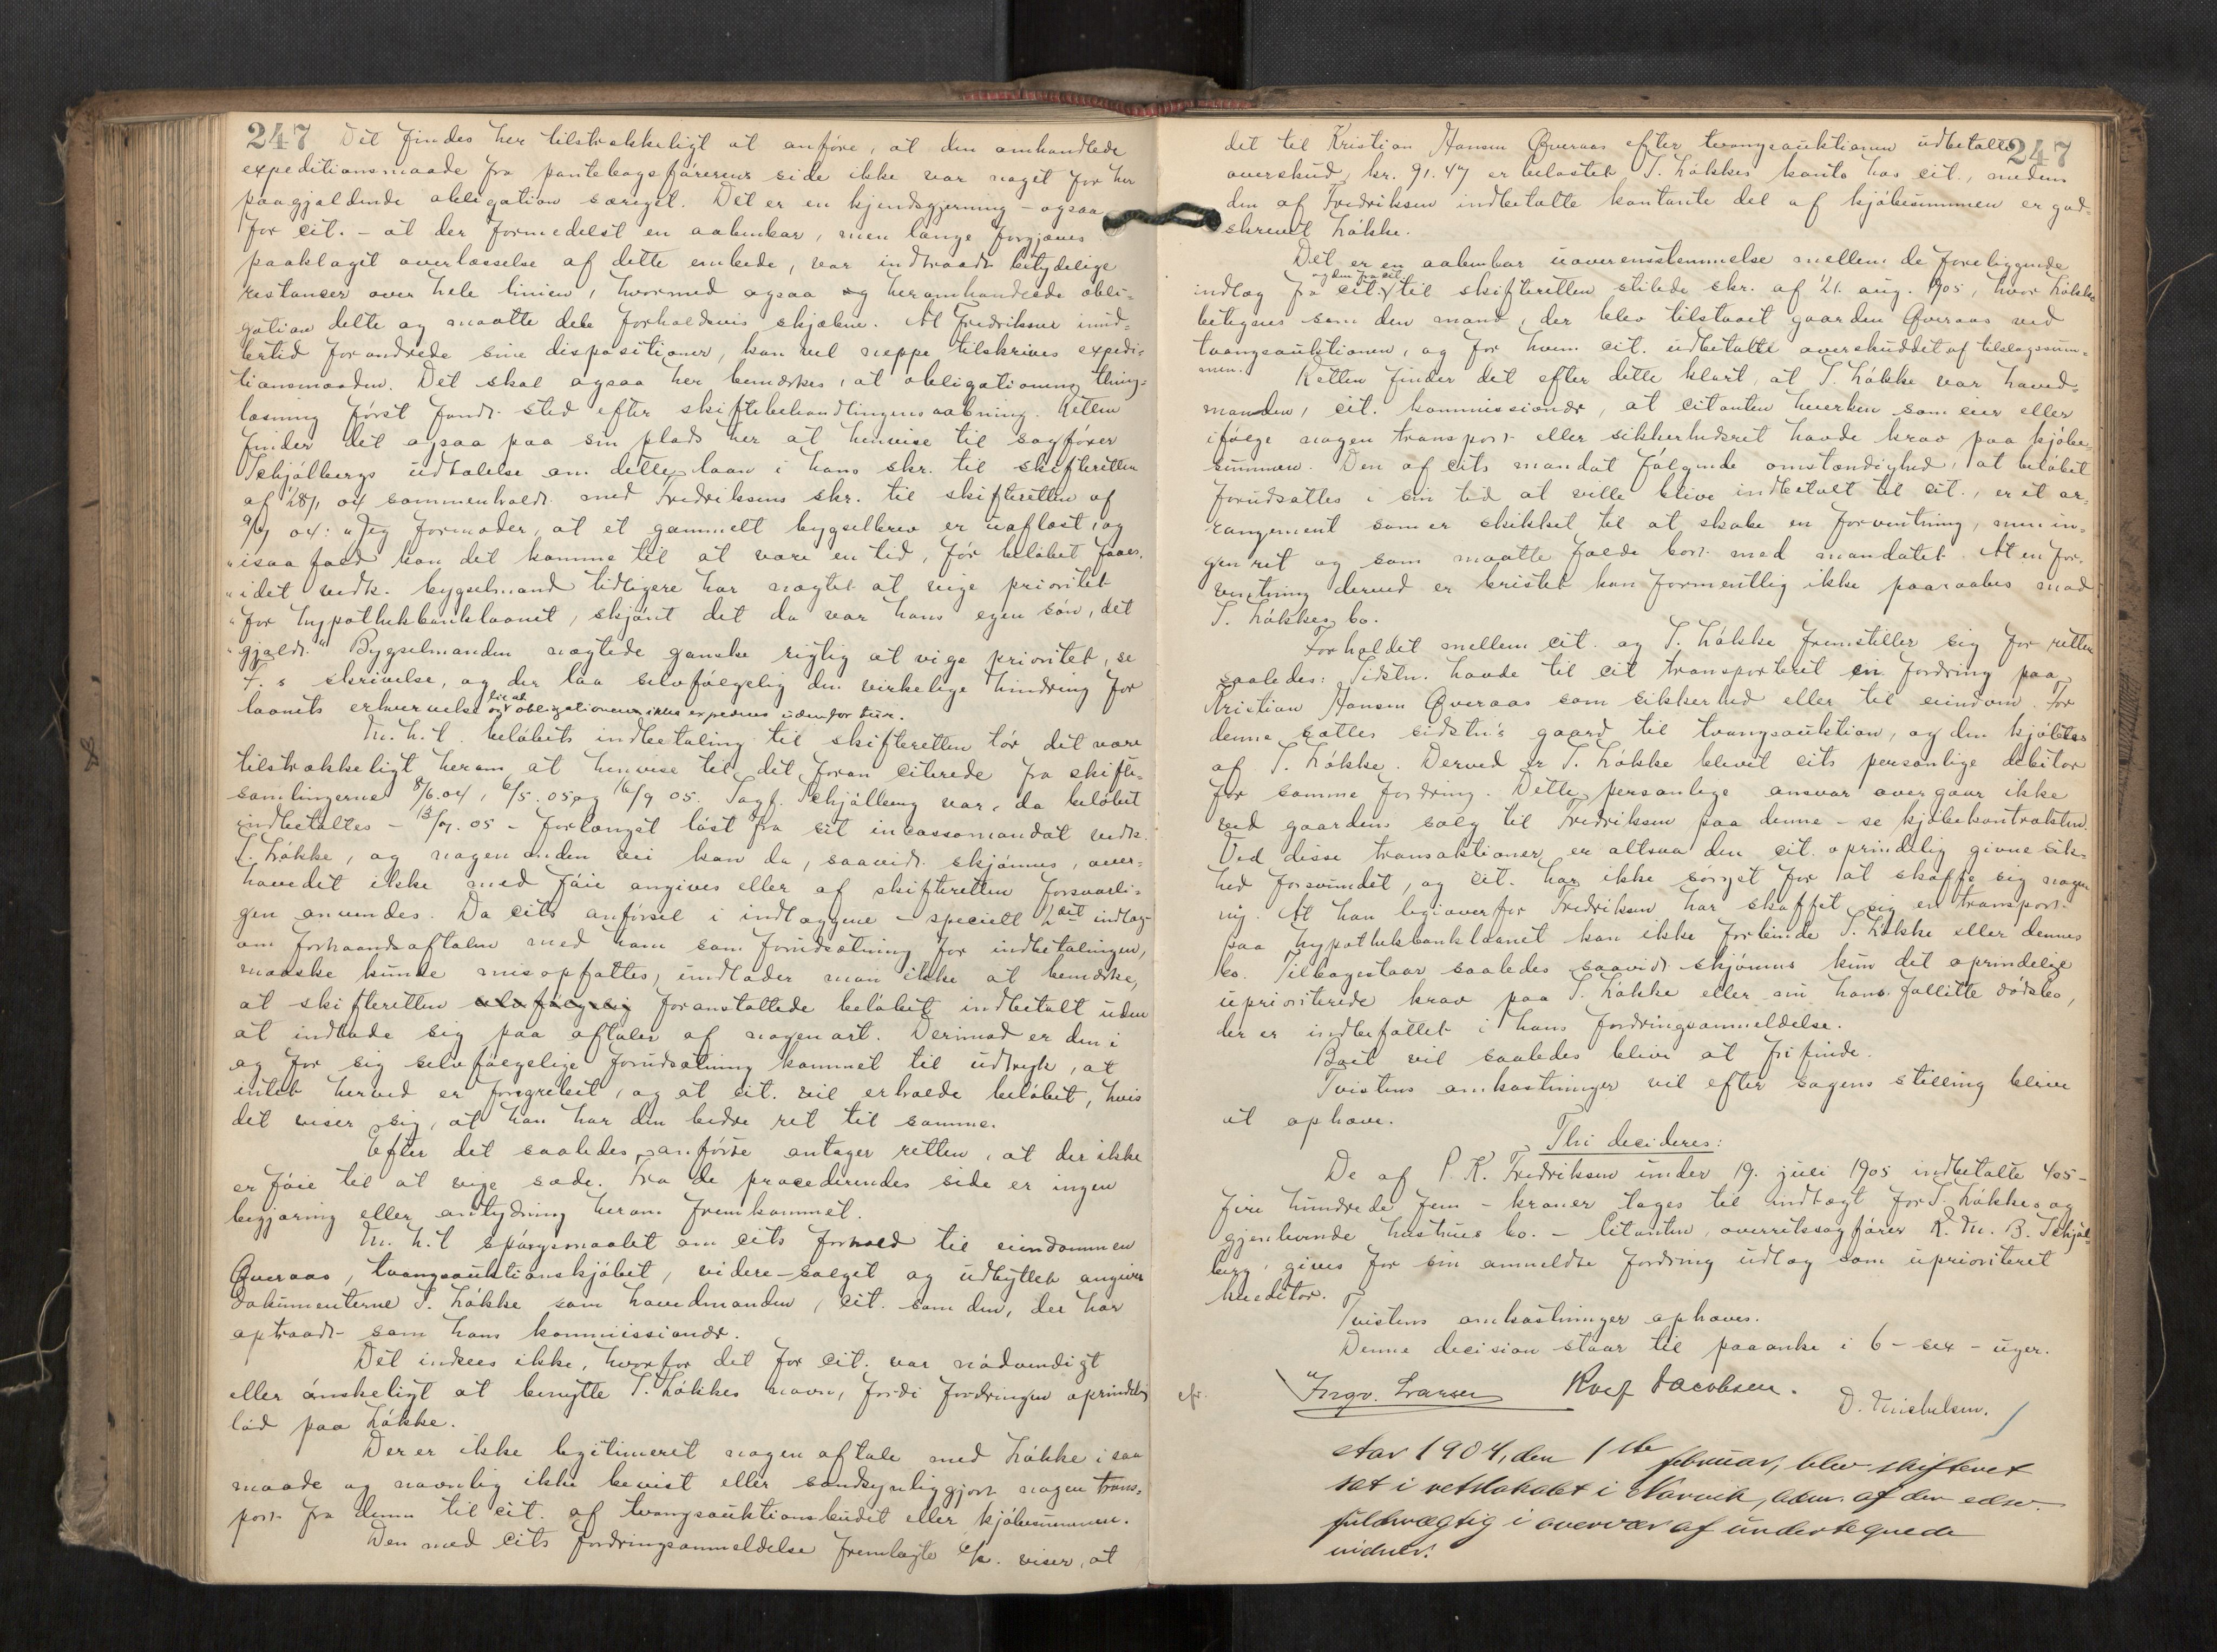 247 Det findes her tilstrækkeligt at anføre, at den omhandlede
expeditionsmaade fra pantebogsførerens side ikke var noget for her
paagjældende obligation særeget. Det er en kjendsgjerning – ogsaa
for cit. – at der formedelst en aabenbar, men længe forgjæves
paaklaget overlæsselse af dette embede, var indtraadt betydelige
restancer over hele linien, hvormed ogsaa heromhandlede obli-
gation delte og maatte dele forholdsvis skjæbne. At Fredriksen imid-
lertid forandrede sine dispositioner, kan vel neppe tilskrives expedi-
tionsmaaden. Det skal ogsaa her bemærkes, at obligationens thing-
læsning først fandt sted efter skiftebehandlingens aabning. Retten
finder det ogsaa paa sin plads her at henvise til sagfører
Schjølbergs udtalelse om dette laan i hans skr. til skifteretten
af 28/1 04 sammenholdt med Fredriksens skr. til skifteretten af
9/7 04: "Jeg formoder, at et gammelt bygselbrev er uaflæst, og
"isaafald kan det komme til at vare en tid, før beløbet faaes,
"idet vedk. bygselmand tidligere har nægtet at vige prioritet
"for hypothekbanklaanet, skjønt det da var hans egen søn, det
"gjaldt." Bygselmanden nægtede ganske rigtig at vige prioritet, se
F.s skrivelse, og der laa selvfølgelig den virkelige hindring for
laanets erhvervelse og ei at obligationen ikke expederes udenfor tur.
M. h. t. beløbets indbetaling til skifteretten tør det være
tilstrækkeligt herom at henvise til det foran citerede fra skifte-
samlingerne 8/6.04, 6/5.05 og 16/9 05. Sagf. Schjølberg var, da beløbet
indbetaltes – 13/7.05 – forlængst løst fra sit incassomandat vedk.
T. Løkke, og nogen anden vei kan da, saavidt skjønnes, over-
hovedet ikke med føie angives eller af skifteretten forsvarli-
gen anvendes. Da cits anførsel i indlæggene – specielt 2det indlæg
om forhaandsaftalen med ham som forudsætning for indbetalingen,
maaske kunde misopfattes, undlader man ikke at bemærke,
at skifteretten selvfølgelig foranstaltede beløbet indbetalt uden
at indlade sig paa aftaler af nogen art. Derimod er den i
og for sig selvfølgelige forudsætning kommet til udtryk, at
intet herved er foregrebet, og at cit. vil erholde beløbet, hvis
det viser sig, at han har den bedre ret til samme.
Efter det saaledes anførte antager retten, at der ikke
er føie til at vige sæde. Fra de procederendes side er ingen
begjæring eller antydning herom fremkommet.
M. h. t spørgsmaalet om cits forhold til eiendommen
Øveraas, tvangsauktionskjøbet, videre-salget og udbyttet angiver
dokumenterne T. Løkke som hovedmanden, cit. som den, der har
optraadt som hans kommissionær.
Det indsees ikke, hvorfor det for cit. var nødvendigt
eller ønskeligt at benytte T. Løkkes navn, fordi fordringen oprindelig
lød paa Løkke.
Der er ikke legitimeret nogen aftale med Løkke i saa
maade og navnlig ikke bevist eller sandsynliggjort nogen trans-
port fra denne til cit. af tvangsauktionsbudet eller kjøbesummen.
Den med cits fordringsanmeldelse fremlagte c/c. viser, at
247
det til Kristian Hansen Øveraas efter tvangsauktionen udbetalte
overskud, kr. 91.47 er belastet T. Løkkes konto hos cit., medens
den af Fredriksen indbetalte kontante del af kjøbesummen er god-
skrevet Løkke.
Det er en aabenbar uoverensstemmelse mellem de foreliggende
indlæg fra cit. og den fra cit. til skifteretten stilede skr. af 21. aug. 1905, hvor Løkke
betegnes som den mand, der blev tilstaaet gaarden Øveraas ved
tvangsauktionen, og for hvem cit. udbetalte overskuddet af tilslagssum-
men.
Retten finder det efter dette klart, at T. Løkke var hoved-
manden, cit. kommissionær, at citanten hverken som eier eller
ifølge nogen transport eller sikkerhedsret havde krav paa kjøbe-
summen. Den af cits mandat følgende omstændighed, at beløbet
forudsattes i sin tid at ville blive indbetalt til cit., er et ar-
rangement som er skikket til at skabe en forventning, men in-
gen ret og som maatte falde bort med mandatet. At en for-
ventning derved er bristet kan formentlig ikke paaraabes mod
T. Løkkes bo.
Forholdet mellem cit. og T. Løkke fremstiller sig for retten
saaledes: Sidstn. havde til cit transporteret en fordring paa
Kristian Hansen Øveraas som sikkerhed eller til eiendom. For
denne sattes sidstn's gaard til tvangsauktion, og den kjøbtes
af T. Løkke. Derved er T. Løkke blevet cits personlige debitor
for samme fordring. Dette personlige ansvar overgaar ikke
ved gaardens salg til Fredriksen paa denne – se kjøbekontrakten.
Ved disse transaktioner er altsaa den cit. oprindelig givne sik-
hed forsvundet, og cit. har ikke sørget for at skaffe sig nogen
ny. At han ligeoverfor Fredriksen har skaffet sig en transport
paa hypothekbanklaanet kan ikke forbinde T. Løkke eller dennes
bo. Tilbagestaar saaledes saavidt skjønnes kun det oprindelige
uprioriterede krav paa T. Løkke eller nu hans fallitte dødsbo,
der er indbefattet i hans fordringsanmeldelse.
Boet vil saaledes blive at frifinde.
Tvistens omkostninger vil efter sagens stilling blive
at ophæve.
Thi decideres:
De af P. K. Fredriksen under 19. juli 1905 indbetalte 405 –
fire hundrede fem – kroner tages til indtægt for T. Løkkes og
gjenlevende hustrues bo. – Citanten, overretssagfører K. M. B. Schjøl-
berg, gives for sin anmeldte fordring udlæg som uprioriteret
kreditor.
Tvistens omkostninger ophæves.
Denne decision staar til paaanke i 6 – sex – uger.
cfr. Ingv. Larsen Rolf Jacobsen. D. Michelsen.
Aar 1904, den 1ste februar, blev skifteret
sat i retslokalet i Narvik, adm. af den edsv.
fuldmægtig i overvær af undertegnede
vidner: